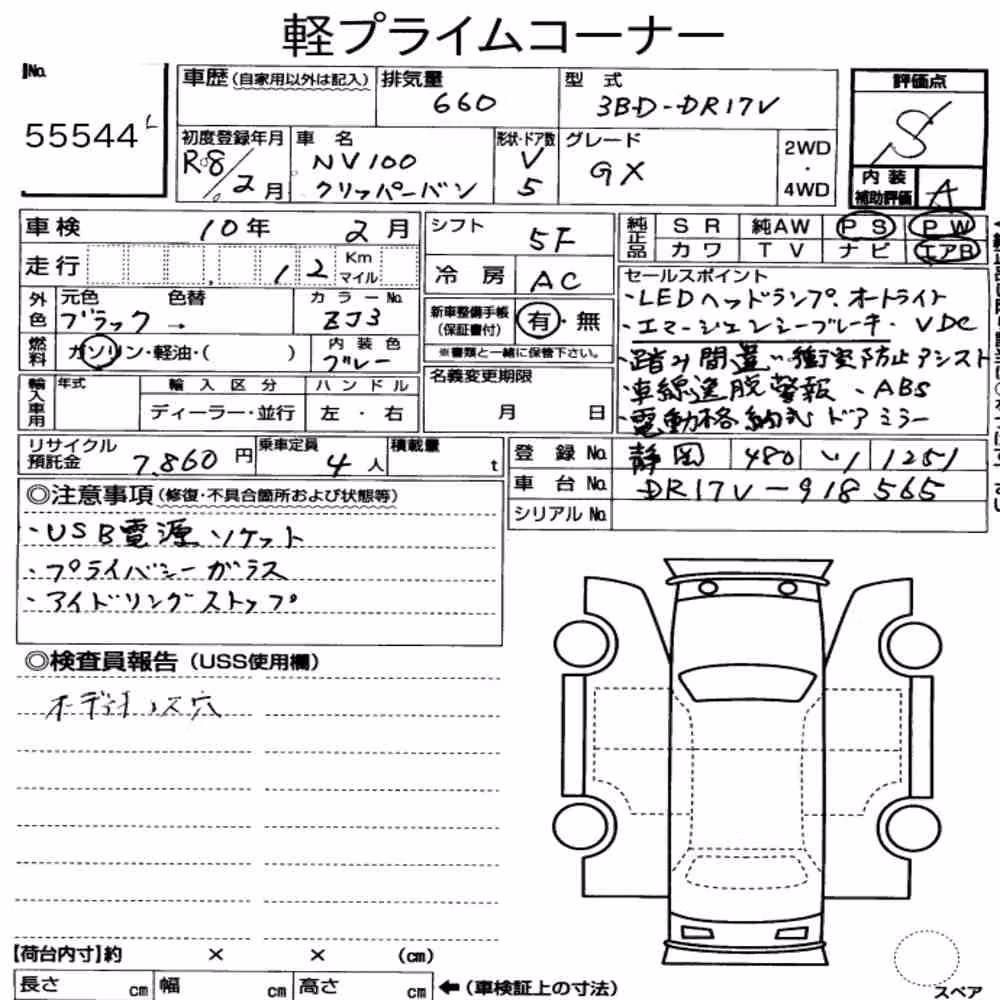 軽プライムコーナー
No.
55544
車歴(自家用以外は記入) 排気量 660 型式 3BD-DR17V 評価点 S
初度登録年月 R8/2月 車名 NV100 クリッパーバン 形状・ドア数 V 5 グレード GX 2WD・4WD 内装補助評価 A
車検 10年 2月 シフト 5F 純正品 SR 純AW PS PW
カワ TV ナビ エアB
走行 12 Km マイル 冷房 AC セールスポイント
外色 元色 ブラック → 色替 カラーNo. ZJ3 新車整備手帳(保証書付) 有・無
・LEDヘッドランプ.オートライト
・エマージェンシーブレーキ・VDC
燃料 ガソリン・軽油・( ) 内装色 グレー ※書類と一緒に保管下さい。
・踏み間違い衝突防止アシスト
輸入車用 年式 輸入区分 ハンドル 名義変更期限
・車線逸脱警報・ABS
ディーラー・並行 左・右 月 日
・電動格納式ドアミラー
リサイクル預託金 7,860円 乗車定員 4人 積載量 t 登録No. 静岡 480 い 1251
車台No. DR17V-918565
シリアルNo.
◎注意事項(修復・不具合箇所および状態等)
・USB電源ソケット
・プライバシーガラス
・アイドリングストップ
◎検査員報告(USS使用欄)
ボディ
穴
【荷台内寸】約 × × (cm)
長さ cm 幅 cm 高さ cm ←(車検証上の寸法)
スペア